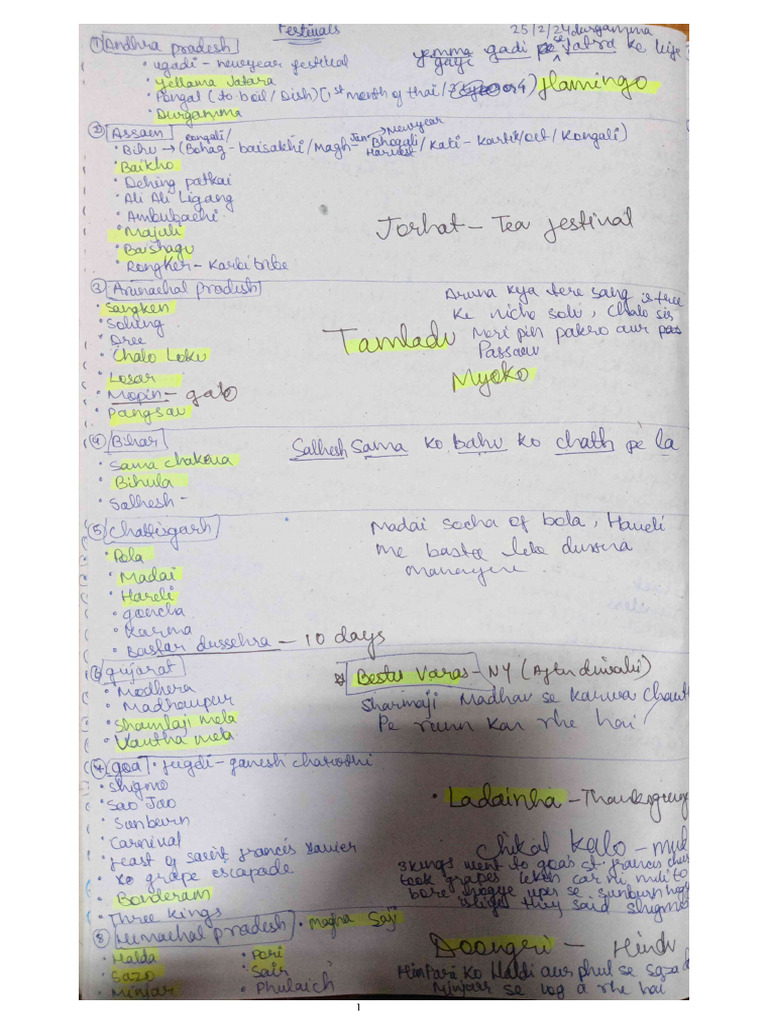 Festivals
25/2/24 durgamma
① Andhra pradesh
yemma gadi pe se Jatra ke liye
gayi
• ugadi - newyear festival
• yellama Jatara
• Pongal (to boil / Dish) [1st month of thai /
flamingo
• Durgamma
② Assam
rongali/
Jan → Newyear
• Bihu → (Bohag - baisakhi / Magh - Bhogali / Kati - Kartik/oct / Kongali)
Harvest
• Baikho
• Dehing patkai
• Ali Ali Ligang
• Ambubachi
Jorhat - Tea festival
• Majuli
• Baishagu
• Rongker - Karbi tribe
③ Arunachal pradesh
Aruna kya tere sang
• Sangken
ke niche solu, Chalo sir
• Solung
Tamladu
Meri pin pakro aur
• Dree
Passaeu
• Chalo Loku
Myoko
• Losar
• Mopin - galo
• Pangsau
④ Bihar
Salhesh Sama ko bahu ko chath pe la
• Sama chakeva
• Bihula
• Salhesh -
⑤ Chattisgarh
Madai socha of bola, Hareli
• Pola
me basta leke dussera
• Madai
• Hareli
• goncha
• Karma
• Bastar dussehra - 10 days
⑥ gujarat
Bestu Varas - NY (After diwali)
• Modhera
• Madhavpur
Sharmaji Madhav se karwa chauth
• Shamlaji mela
Pe runn kar rhe hai
• Vautha mela
⑦ goa • fugdi - ganesh chaturthi
• Shigmo
• Ladainha - Thanksgiving
• Sao Joao
• Sunburn
• Carnival
Chikal Kalo - mud
• feast of saint francis xavier
3 kings went to goa's st francis
• grape escapade
took grapes lekin car ni mili to
• Bonderam
bore hogye uper se, sunburn
• Three kings
they said shigmo
⑧ Himachal pradesh • Magha Saji
Doongri - Hindu
• Halda • Pori
• Sazo • Sair
Himpari ko Haldi aur phul se
• Minjar • Phulaich
Minjar se log a rhe hai
1